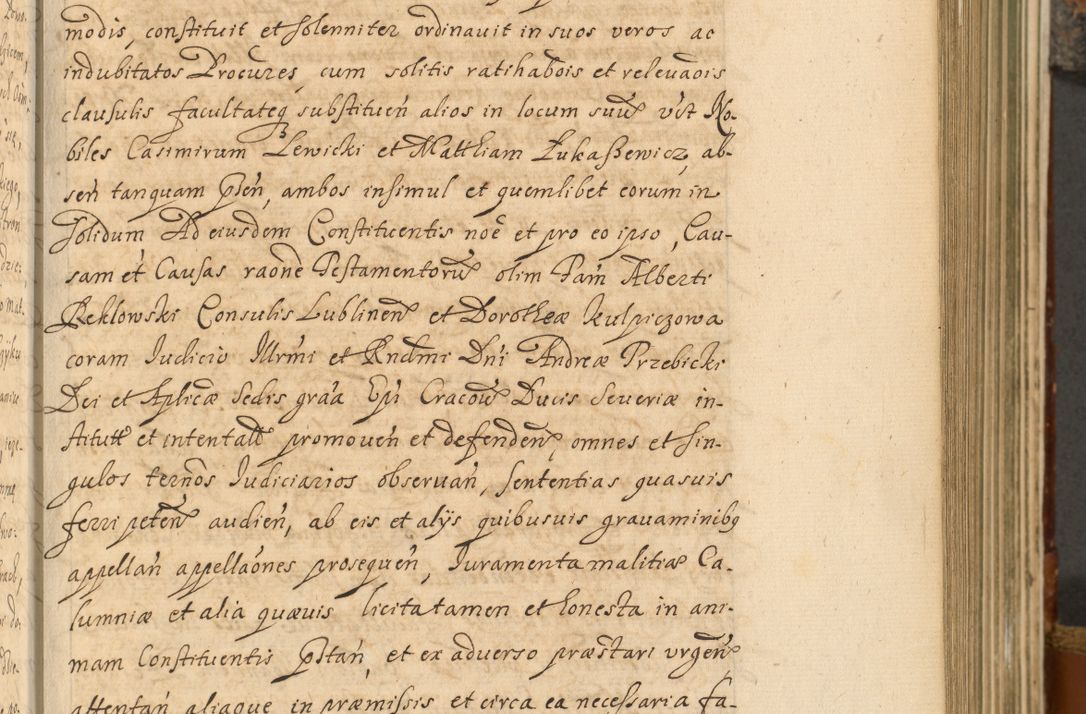 modis, constituit et solenniter ordinauit in suos veros ac
indubitatos Procures, cum solitis ratihabois et releuaois
clausulis facultateq substituen̄ alios in locum suū vt No-
biles Casimirum Lewicki et Matthiam Łukaszewicz, ab-
sen̄ tanquam pn̄ten̄, ambos insimul et quemlibet eorum in
solidum Ad eiusdem Constituentis noē et pro eo ipso, Cau-
sam et Causas raōne Testamentorū olim Fam̄ Alberti
Reklowski Consulis Lublinen̄ et Dorotheæ Kulpiczowa
coram Iudicio Illrm̄i et Rndm̄i Dn̄i Andreæ Trzebicki
Dei et Aplicæ Sedis grāa Ep̄i Cracou̅ Ducis Seueriæ in-
stitut̄ et intentat̄ promouen̄ et defenden̄, omnes et sin-
gulos term̄os Iudiciarios obseruan̄, sententias quasuis
ferri peten̄ audien̄, ab eis et alijs quibusuis grauaminibq
appellan̄ appellaōnes prosequen̄, Iuramenta malitiæ Ca-
lumniæ et alia quæuis licita tamen et honesta in ani-
mam Constituentis pr̄stan̄, et ex aduerso præstari vrgen̄
attentan̄ aliaque in præmissis et circa ea necessaria fa-